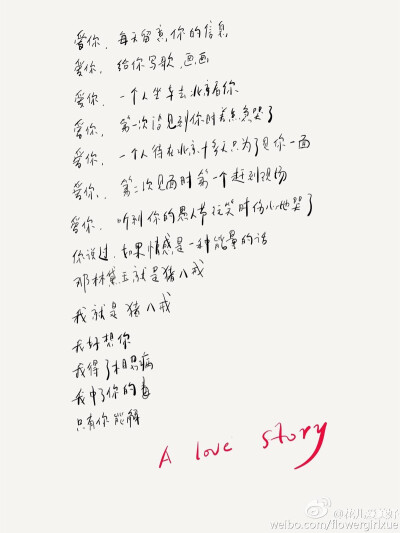 爱你，每天留意你的信息
爱你，给你写歌，画画
爱你，一个人坐车去北京看你
爱你，第一次诣见到你时差点多哭了
爱你，一个人待在北京十多天只为了见你一面
爱你，第二次见面时第一个赶到现场
爱你，听到你的愚人节玩笑时伤心地哭了
你说过，如果情感是一种能量的话
那林黛玉就是猪八戒
我就是猪八戒
我好想你
我得了相思病
我中了你的毒
只有你能解
A love story
weibo.com/flowergirlxue